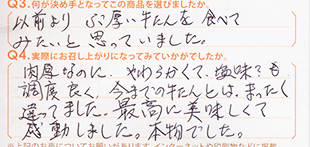 Q3.何が決め手となってこの商品を選びましたか。
以前より ぶ厚い牛たんを食べて
みたいと思っていました。
Q4.実際にお召し上がりになってみていかがでしたか。
肉厚なのに、やわらかくて、塩味?も
調度良く、今までの牛たんとは、まったく
違ってました。最高に美味しくて
感動しました。本物でした。
※上記のお声についてお願いがあります。インターネットや印刷物などに掲載